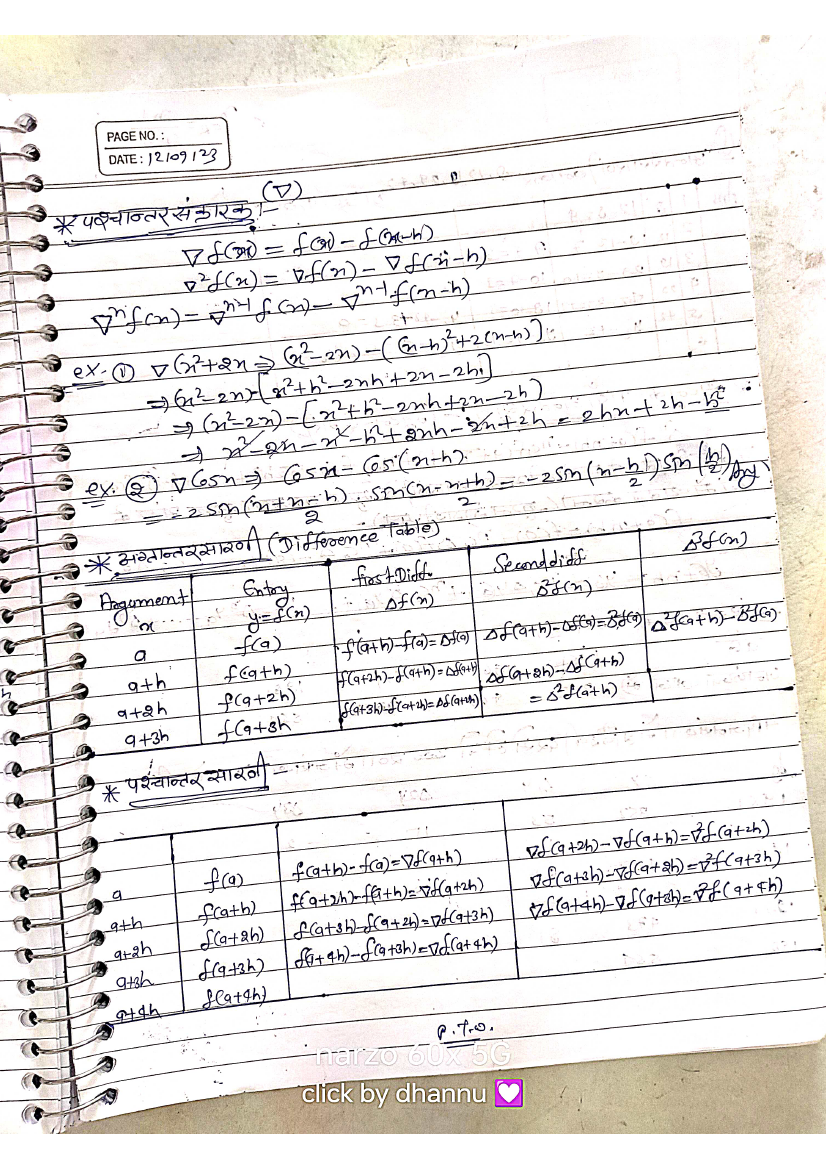 PAGE NO. :
DATE : 12/09/23
* पश्चान्तर संकारक :- (∇)
∇ f(x) = f(x) - f(x-h)
∇²f(x) = ∇f(x) - ∇f(x-h)
∇ⁿf(x) = ∇ⁿ⁻¹ f(x) - ∇ⁿ⁻¹ f(x-h)
ex. ① ∇(x²+2x ⇒ (x²-2x) - ( (x-h)²+2(x-h)]
⇒ (x²-2x)-[x²+h²-2xh+2x-2h]
⇒ (x²-2x) - [x²+h²-2xh+2x-2h)
⇒ x²-2x-x²-h²+2xh-2x+2h = 2hx+2h-h²
ex. ② ∇Cosx ⇒ Cosx - Cos(x-h).
= -2 Sin(x+x-h)/2 . Sin(x-x+h)/2 = -2Sin(x-h/2) Sin(h/2) Ans
* अग्रान्तर सारणी (Difference Table)
Argument x | Entry y=f(x) | first Diff. Δf(x) | Second diff Δ²f(x) | Δ³f(x)
a | f(a) | f(a+h)-f(a)=Δf(a) | Δf(a+h)-Δf(a)=Δ²f(a) | Δ²f(a+h)-Δ²f(a).
a+h | f(a+h) | f(a+2h)-f(a+h)=Δf(a+h) | Δf(a+2h)-Δf(a+h)
a+2h | f(a+2h) | f(a+3h)-f(a+2h)=Δf(a+2h) | = Δ²f(a+h)
a+3h | f(a+3h
* पश्चान्तर सारणी -
a | f(a) | f(a+h)-f(a)=∇f(a+h) | ∇f(a+2h)-∇f(a+h)=∇²f(a+2h)
a+h | f(a+h) | f(a+2h)-f(a+h)=∇f(a+2h) | ∇f(a+3h)-∇f(a+2h)=∇²f(a+3h)
a+2h | f(a+2h) | f(a+3h)-f(a+2h)=∇f(a+3h) | ∇f(a+4h)-∇f(a+3h)=∇²f(a+4h)
a+3h | f(a+3h) | f(a+4h)-f(a+3h)=∇f(a+4h)
a+4h | f(a+4h)
P.T.O.
narzo 60x 5G
click by dhannu 💟